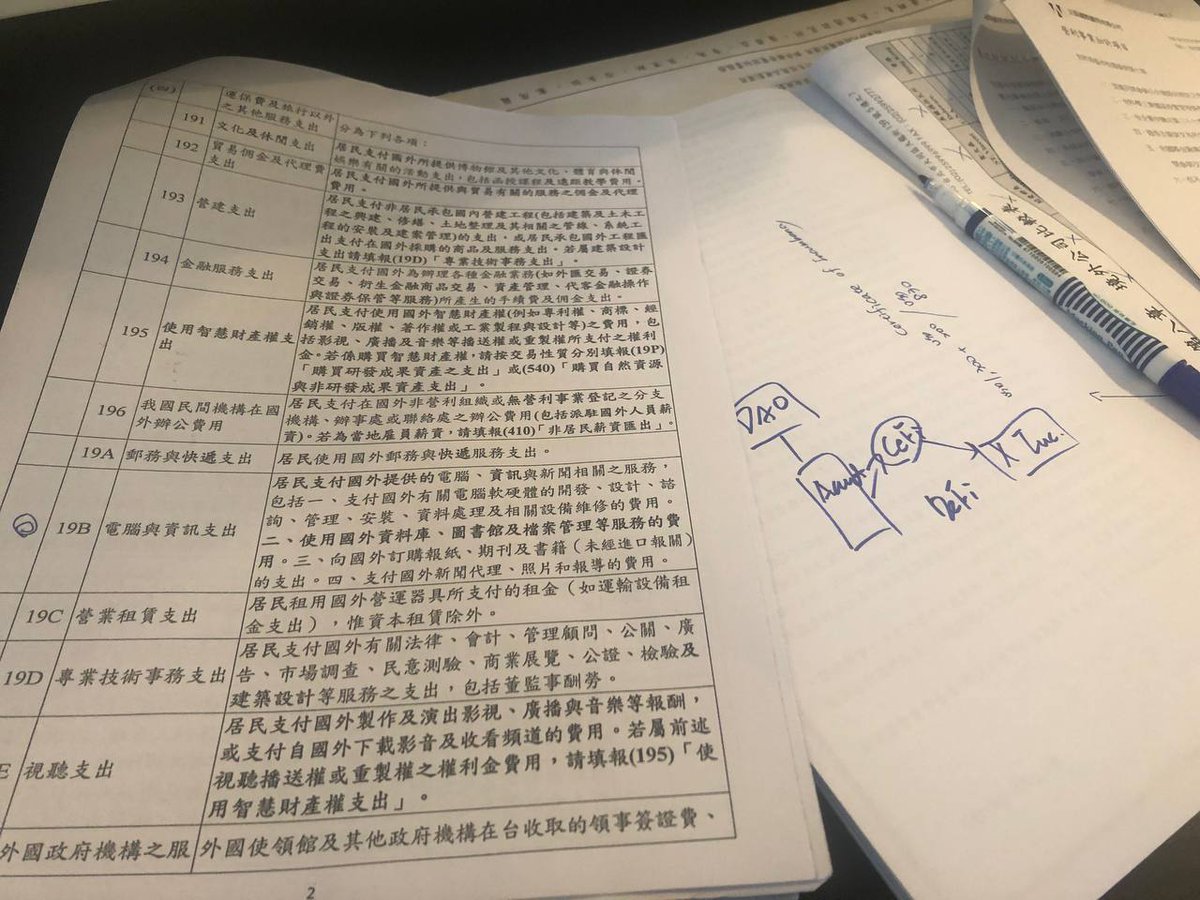 (四)
運保費及旅行以外
之其他服務支出
分為下列各項：
191
文化及休閒支出
居民支付國外所提供博物館及其他文化、體育與休閒
娛樂有關的活動支出，包括函授課程及遠距教學費用。
192
貿易佣金及代理費
支出
居民支付國外所提供與貿易有關的服務之佣金及代理
費用。
193
營建支出
居民支付非居民承包國內營建工程(包括建築及土木工
程之興建、修繕、土地整理及其相關之管線、系統工
程的安裝及建案管理)的支出，或居民承包國外工程匯
出支付在國外採購的商品及服務支出。若屬建築設計
支出請填報(19D)「專業技術事務支出」。
194
金融服務支出
居民支付國外為辦理各種金融業務(如外匯交易、證券
交易、衍生金融商品交易、資產管理、代客金融操作
與證券保管等服務)所產生的手續費及佣金支出。
195
使用智慧財產權支
出
居民支付使用國外智慧財產權(例如專利權、商標、經
銷權、版權、著作權或工業製程與設計等)之費用，包
括影視、廣播及音樂等播送權或重製權所支付之權利
金。若係購買智慧財產權，請按交易性質分別填報(19P)
「購買研發成果資產之支出」或(540)「購買自然資源
與非研發成果資產支出」。
196
我國民間機構在國
外辦公費用
居民支付在國外非營利組織或無營利事業登記之分支
機構、辦事處或聯絡處之辦公費用(包括派駐國外人員薪
資)。若為當地雇員薪資，請填報(410)「非居民薪資匯出」。
19A
郵務與快遞支出
居民使用國外郵務與快遞服務支出。
19B
電腦與資訊支出
居民支付國外提供的電腦、資訊與新聞相關之服務，
包括一、支付國外有關電腦軟硬體的開發、設計、諮
詢、管理、安裝、資料處理及相關設備維修的費用。
二、使用國外資料庫、圖書館及檔案管理等服務的費
用。三、向國外訂購報紙、期刊及書籍（未經進口報關）
的支出。四、支付國外新聞代理、照片和報導的費用。
19C
營業租賃支出
居民租用國外營運器具所支付的租金（如運輸設備租
金支出），惟資本租賃除外。
19D
專業技術事務支出
居民支付國外有關法律、會計、管理顧問、公關、廣
告、市場調查、民意測驗、商業展覽、公證、檢驗及
建築設計等服務之支出，包括董監事酬勞。
E
視聽支出
居民支付國外製作及演出影視、廣播與音樂等報酬，
或支付自國外下載影音及收看頻道的費用。若屬前述
視聽播送權或重製權之權利金費用，請填報(195)「使
用智慧財產權支出」。
外國政府機構之服
外國使領館及其他政府機構在台收取的領事簽證費、
2
Certificate of Incumbency
DAO
CeFi
DeFi
X Inc.
境外公司比較表